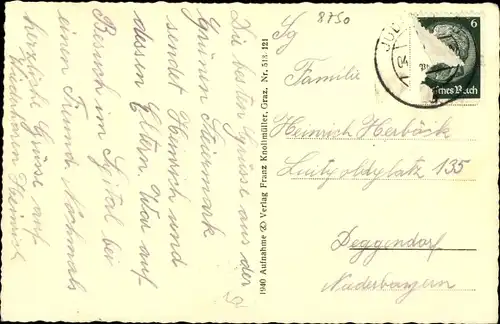 Die besten Grüsse aus der
Grünen Steiermark
sendet Heinrich und
dessen Eltern. War auf
Besuch im Spital bei
einem Freund. Nochmals
herzliche Grüsse auf
Wiedersehen Heinrich
1940 Aufnahme Verlag Franz Knollmüller, Graz. Nr. 513 121
8750
Sg
Familie
Heinrich Herböck
Luitpoldplatz 135
Deggendorf
Niederbayern
6
Deutsches Reich